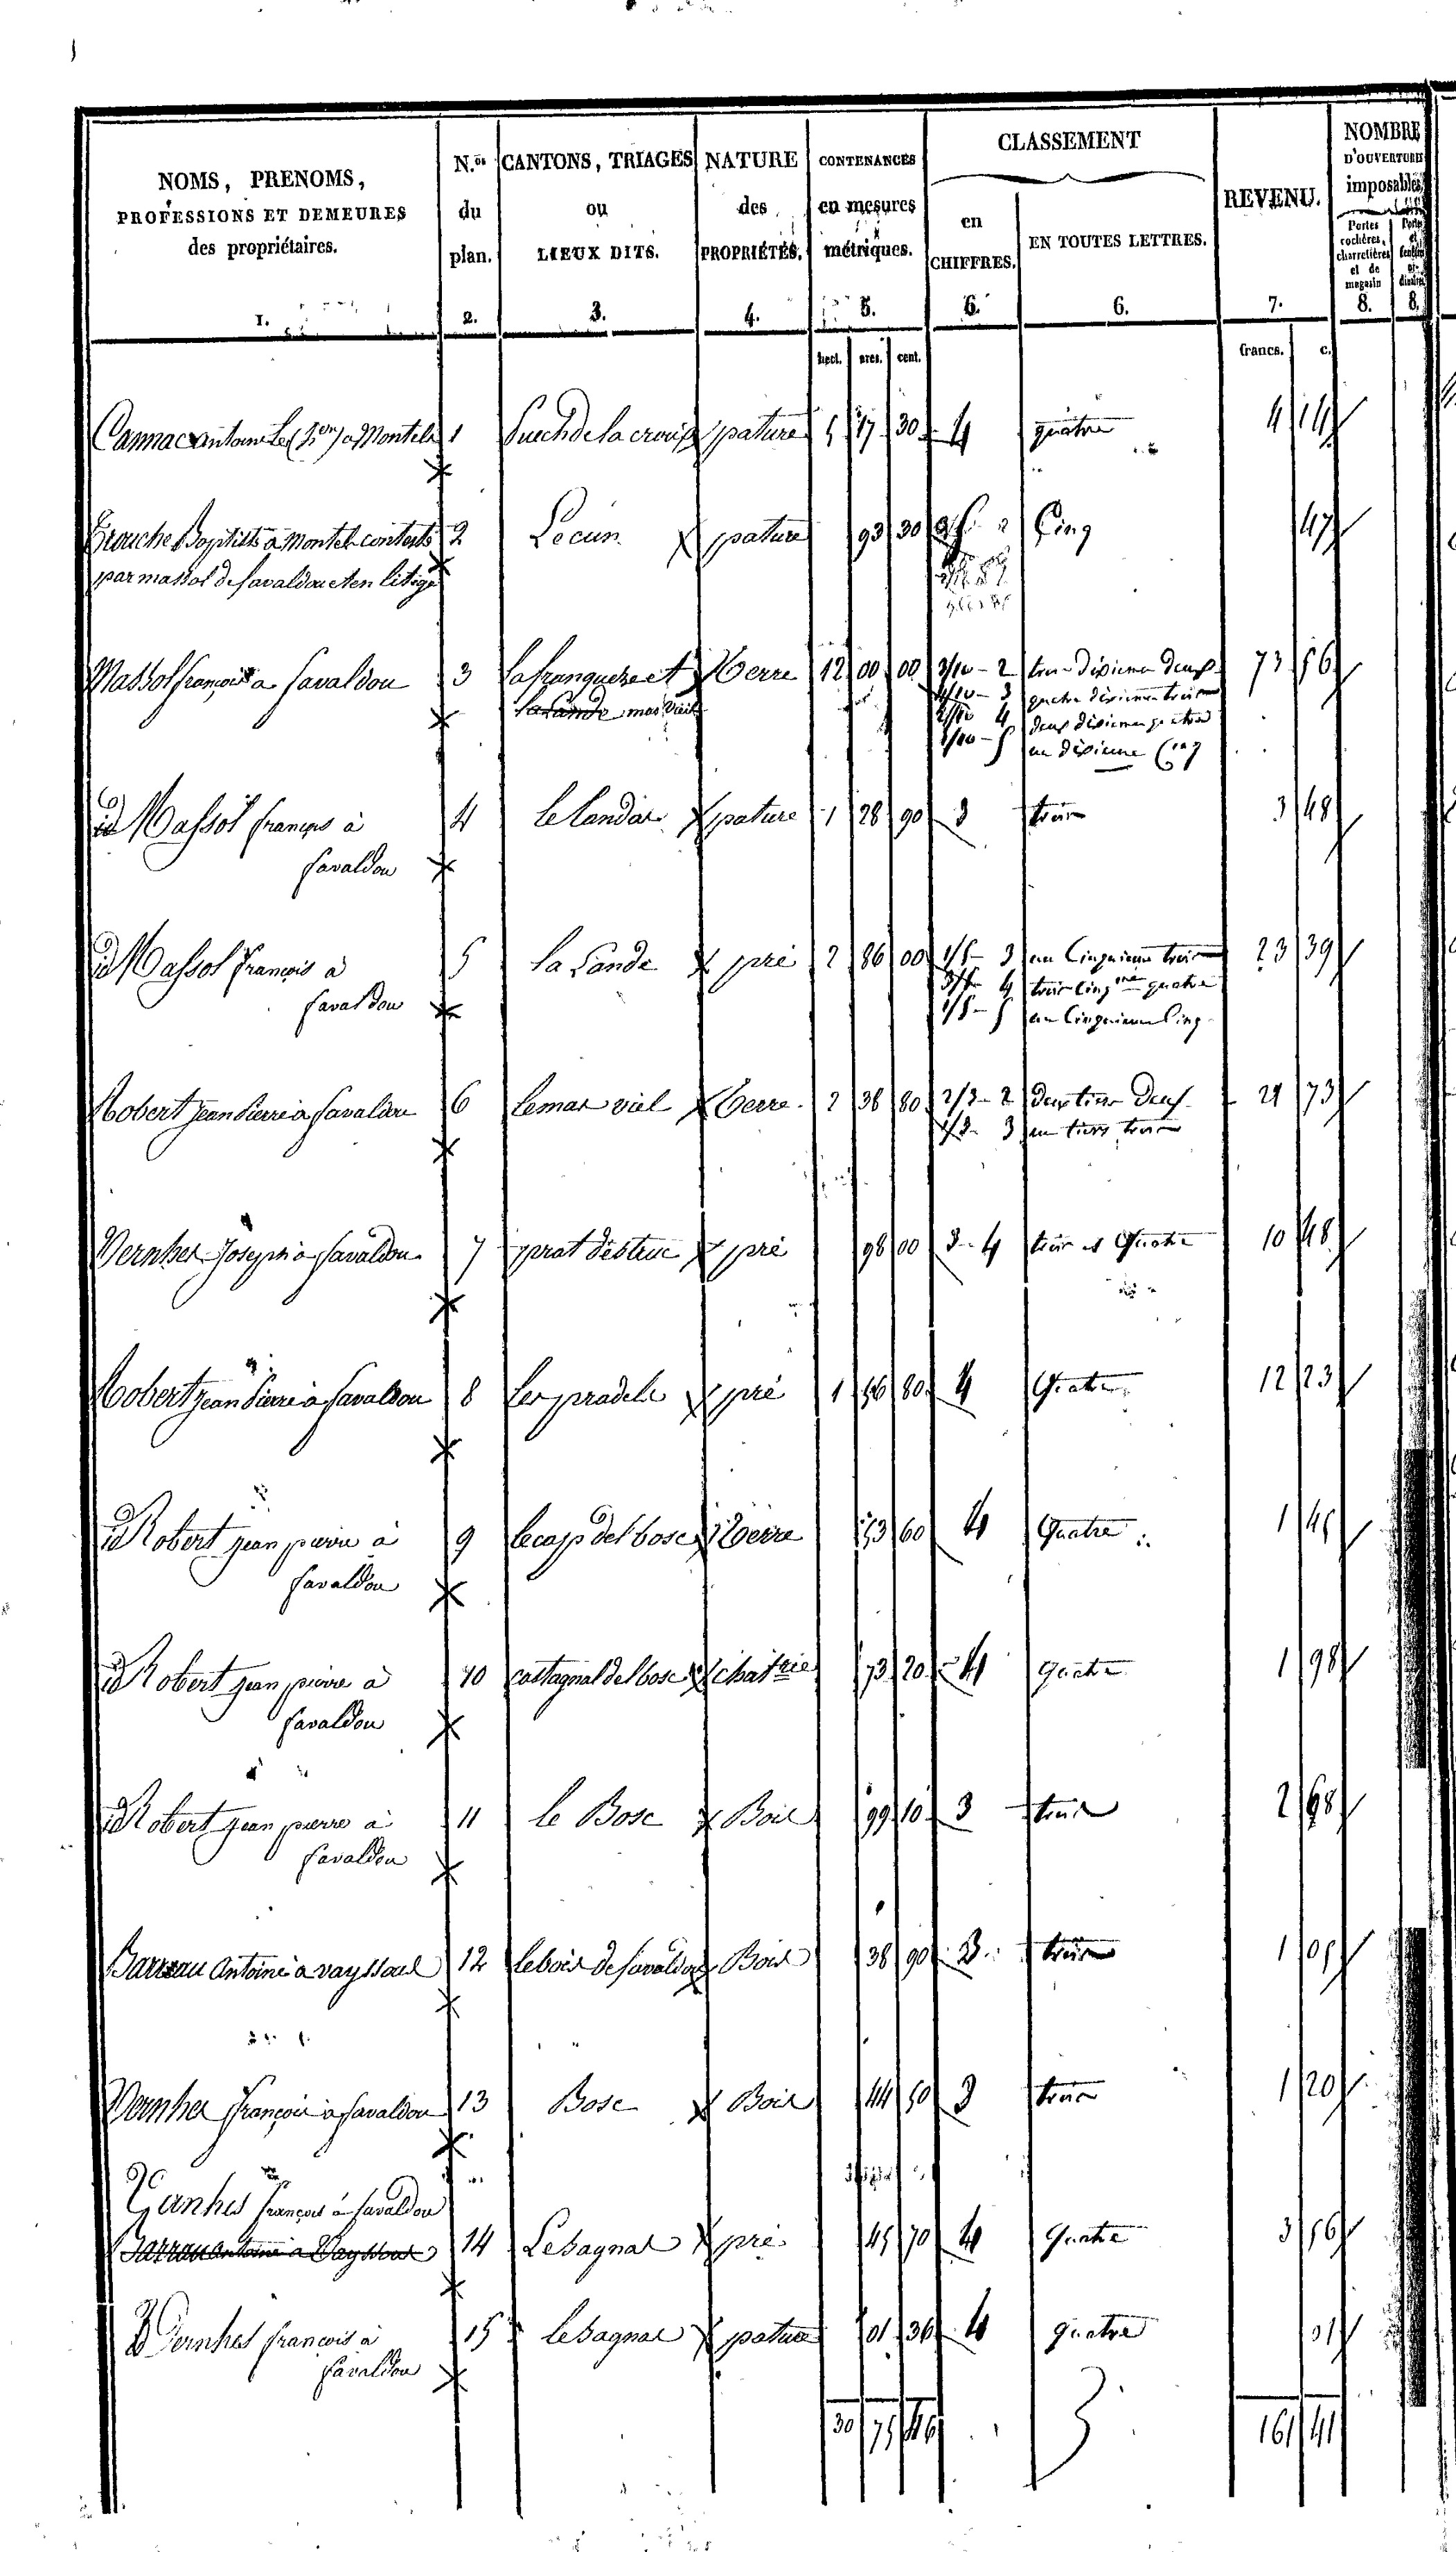 NOMS, PRENOMS,
PROFESSIONS ET DEMEURES
des propriétaires.
1.
N.os
du
plan.
2.
CANTONS, TRIAGES
ou
LIEUX DITS.
3.
NATURE
des
PROPRIÉTÉS.
4.
CONTENANCES
en mesures
métriques.
5.
CLASSEMENT
en
CHIFFRES.
6.
EN TOUTES LETTRES.
6.
REVENU.
7.
NOMBRE
D'OUVERTURES
imposables
Portes
cochères,
charretières
et de
magasin
8. 8.
hect. ares. cent. francs. c.
Cannac antoine a Montels 1 Puech de la croix pature 5 17 30 4 quatre 4 14
Baptiste a Montels contesté 2 Le cun pature 93 30 5 Cinq 47
par massol de favaldou et en litige
Massol françois a favaldou 3 la franqueze et terre 12 00 00 3/10 - 2 trois dixieme deux 73 56
la Lande mas viel 4/10 - 3 quatre dixieme trois
2/10 4 deux dixieme quatre
1/10 - 5 un dixieme Cinq
id Massol françois à 4 le Landas pature 1 28 90 3 trois 3 48
favaldou
id Massol françois a 5 la Lande pré 2 86 00 1/5 - 3 un Cinquieme trois 23 39
favaldou 3/5 4 trois Cinqme quatre
1/5 - 5 un Cinquieme Cinq
Robert jean Pierre à favaldou 6 le mas viel terre 2 38 80 2/3 - 2 deux tiers deux 21 73
1/3 - 3 un tiers trois
Vernhes Joseph à favaldou 7 prat destruc pré 98 00 3 - 4 trois et Quatre 10 48
Robert jean Pierre à favaldou 8 Les pradels pré 1 56 80 4 Quatre 12 23
id Robert jean pierre à 9 le cap del bosc terre 53 60 4 Quatre 1 45
favaldou
id Robert jean pierre à 10 castagnal del bosc chatrie 73 20 4 Quatre 1 98
favaldou
id Robert jean pierre à 11 le Bosc Bois 99 10 3 trois 2 68
favaldou
Barrau Antoine a vayssoux 12 le bois de favaldou Bois 38 90 3 trois 1 05
Vernhes françois à favaldou 13 Bosc Bois 44 50 3 trois 1 20
françois à favaldou
Barrau antoine à Vayssoux 14 Le sagnas pré 45 70 4 Quatre 3 56
id Vernhes françois à 15 le sagnas pature 01 36 4 quatre 01
favaldou
30 75 46 3 161 41